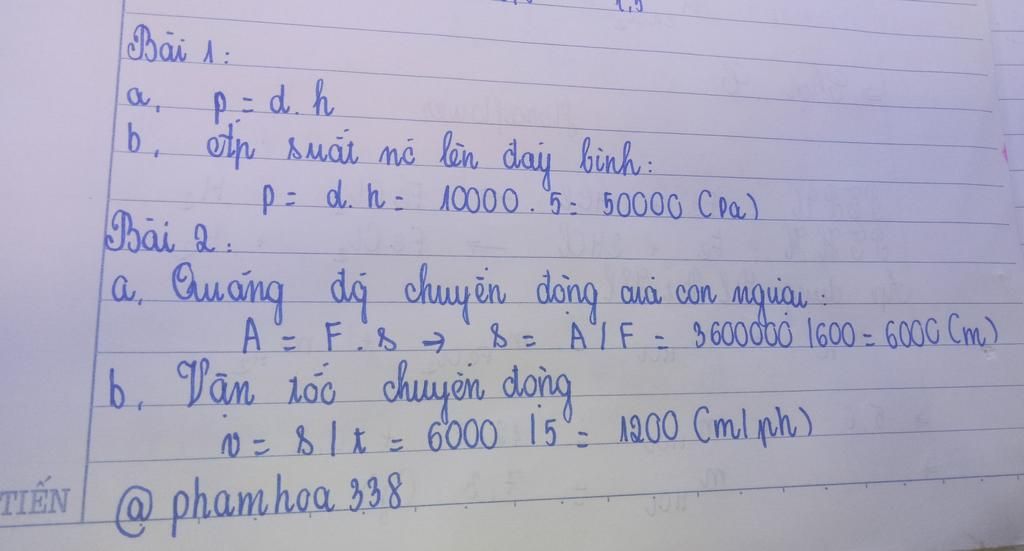 1,5
Bài 1:
a, p = d.h
b, Áp suất nó lên đay bình:
p = d.h = 10000 . 5 = 50000 (Pa)
Bài 2:
a, Quãng độ chuyển dòng của con người:
A = F.s → s = A/F = 3600000/600 = 6000 (m)
b, Vân tốc chuyển dòng
v = s/t = 6000/5 = 1200 (m/ph)
TIẾN
@phamhoa338